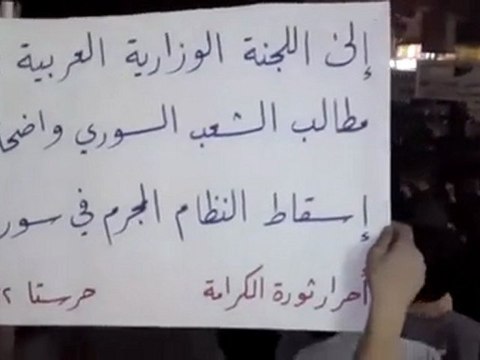 إلى اللجنة الوزارية العربية
مطالب الشعب السوري واضحا
إسقاط النظام المجرم في سور
أحرار ثورة الكرامة حرستا ٢